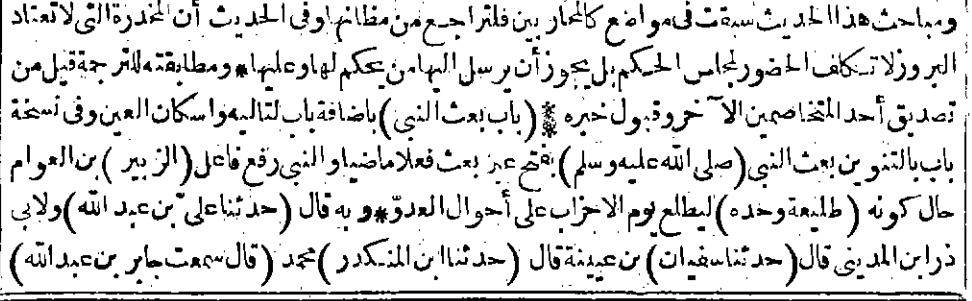 ومباحث هذا الحديث سبقت في مواضع كالمحاربين فلتراجع من مظانها وفي الحديث أن المخدرة التي لا تعتاد
البروز لا تكلف الحضور لمجلس الحكم بل يجوز أن يرسل اليها من يحكم لها وعليها * ومطابقته للترجمة قيل من
تصديق أحد المتخاصمين الآخر وقبول خبره * (باب بعث النبي) باضافة باب لتاليه واسكان العين وفي نسخة
باب بالتنوين بعث النبي (صلى الله عليه وسلم) بفتح عين بعث فعلا ماضيا والنبي رفع فاعل (الزبير) بن العوام
حال كونه (طليعة وحده) ليطلع يوم الاحزاب على أحوال العدوّ * وبه قال (حدثنا علي بن عبد الله) ولابي
ذر ابن المديني قال (حدثنا سفيان) بن عيينة قال (حدثنا ابن المنكدر) محمد (قال سمعت جابر بن عبد الله)